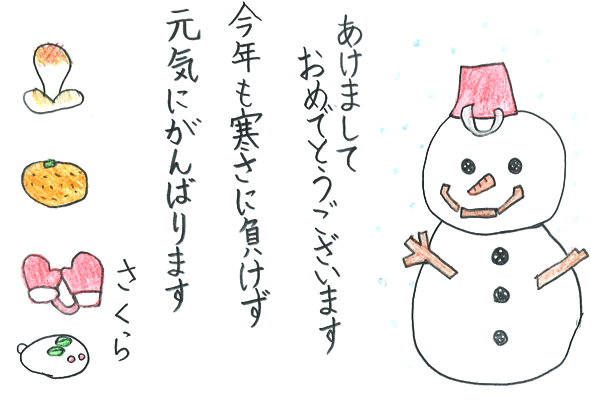 あけまして
おめでとうございます
今年も寒さに負けず
元気にがんばります
さくら